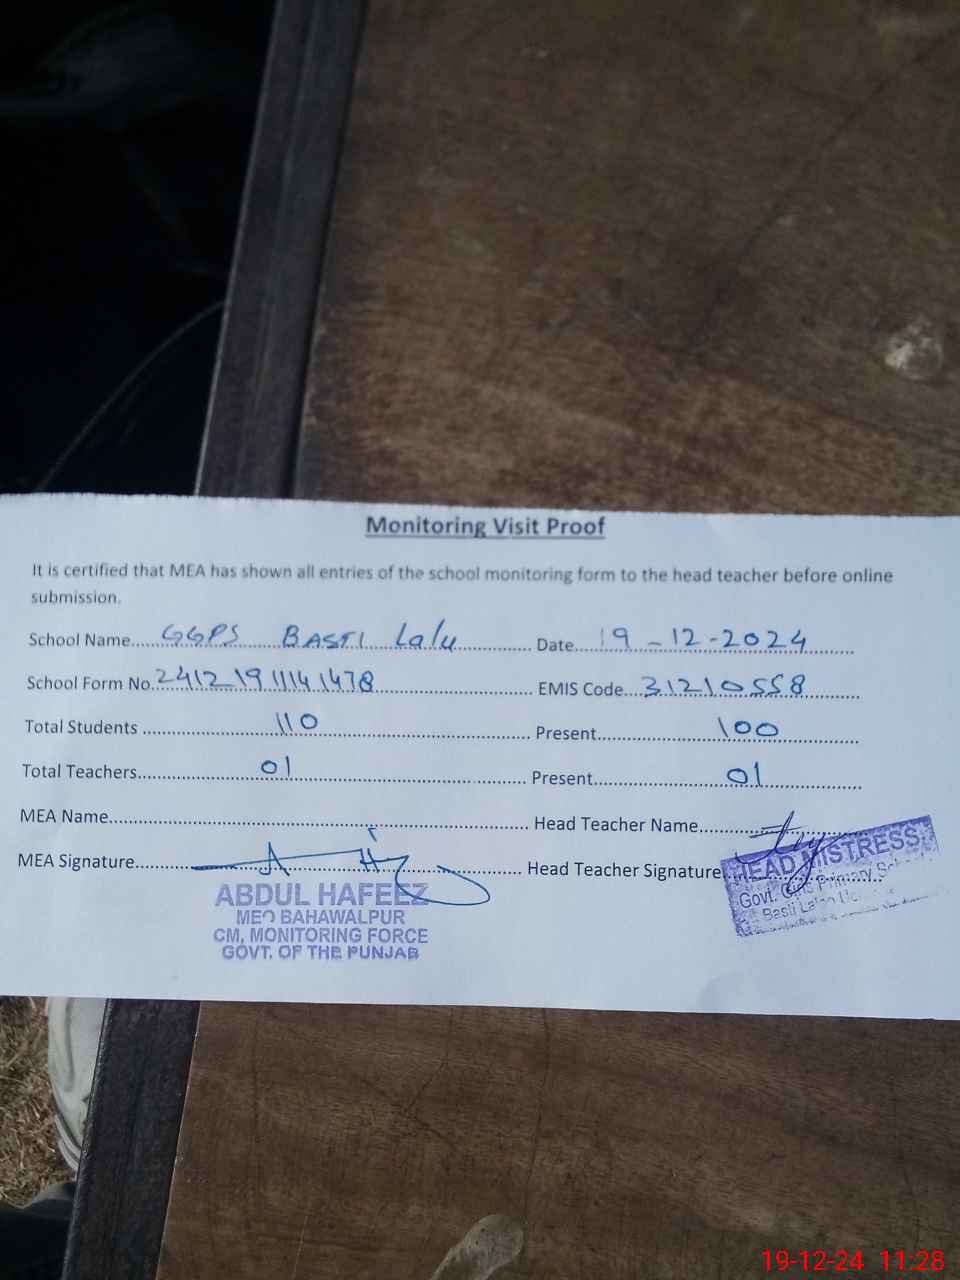 Monitoring Visit Proof
It is certified that MEA has shown all entries of the school monitoring form to the head teacher before online
submission.
School Name.....GGPS BASTI Lalu............ Date...19-12-2024........
School Form No.241219111141478............ EMIS Code...31210558........
Total Students ............110............ Present............100............
Total Teachers............01............ Present............01............
MEA Name............ Head Teacher Name............
MEA Signature............ Head Teacher Signature............
ABDUL HAFEEZ
MEO BAHAWALPUR
CM, MONITORING FORCE
GOVT. OF THE PUNJAB
HEAD MISTRESS
Govt. Girls Primary
Basti
19-12-24 11:28